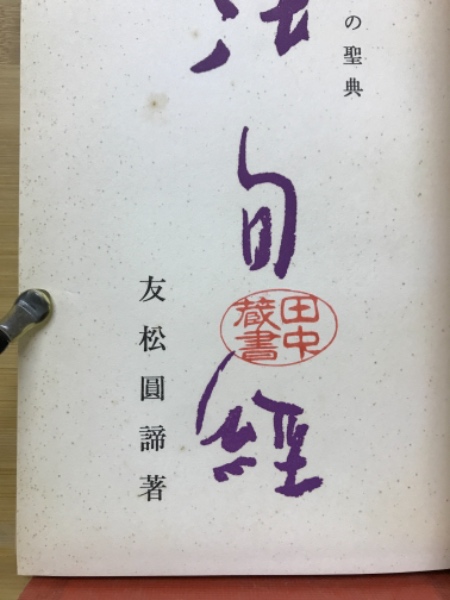 の聖典
法句経
田中
蔵書
友松圓諦著